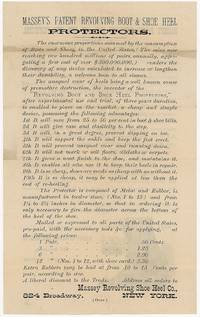 MASSEY'S PATENT REVOLVING BOOT & SHOE HEEL
PROTECTORS.
The enormous proportions assumed by the consumption
of Boots and Shoes, in the United States,
one hundred millions of pairs, annually,
a first cost of over
discovery of any device calculated to increase or lengthen
their durability, a welcome boon to all classes.
The unequal wear of heels being a well known cause
of premature destruction, the inventor of the
"REVOLVING BOOT AND SHOE HEEL PROTECTORS,"
after experimental use and trial, of three years duration,
is enabled to place on the market a cheap and simple
device, possessing the following advantages:
1st It will save from 25 to 50 per cent in boot & shoe bills.
2d It will give ease and elasticity to the step.
3d It will, in a great degree, prevent slipping on ice.
4th It will prevent the
5th It will prevent unequal wear and turning down.
6th It will not mark or soil floors, oilcloths or carpets.
7th It gives a neat finish to the shoe, and
8th It enables all who use it to keep their heels in repair.
9th It is so cheap, does not
10th It is so cheap, it may be applied at less than the
cost of re-heeling.
The Protector is composed of Metal and Rubber, is
manufactured in twelve sizes, (Nos. 1 to 12) and from
inches in diameter, so that in ordering it is
only necessary to give the diameter across the bottom
of the heel of the shoe.
Mailed or expressed to all parts of the United States,
pre-paid, with the necessary tools &c for applying, at
the following prices:
1 Pair 50 Cents.
3 " 1.25
6 " 2.30
12 " (Nos. 1 to 12, with show card)
Extra Rubbers may be had at from 10 to 15 cents per
pair, according to size.
A liberal discount to the Trade. Address all orders to
Massey Revolving Shoe Heel Co.,
824 Broadway, NEW YORK.
(Over)